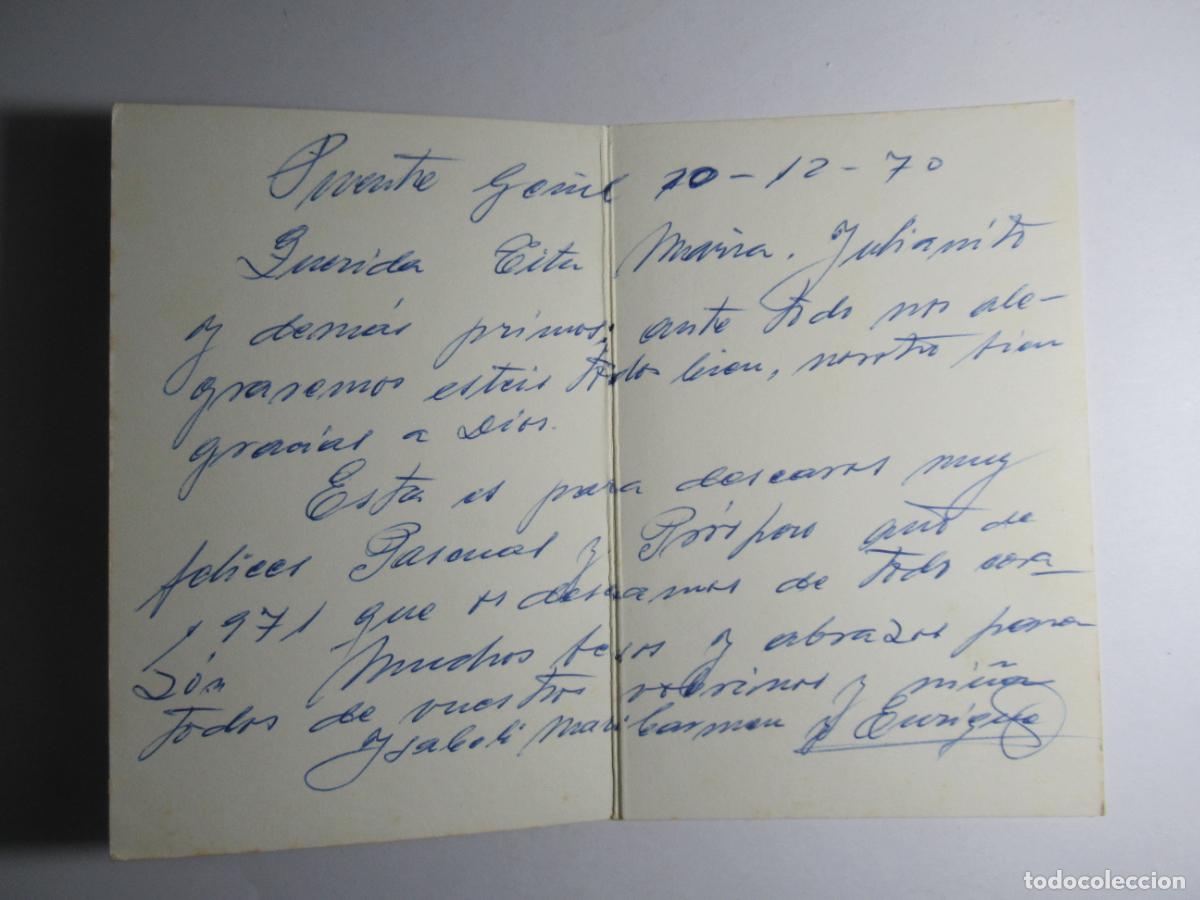 Puente Genil 10-12-70
Querida Tita María. Julianito
y demás primos; ante todo nos ale-
graremos esteis todos bien, nosotro bien
gracias a Dios.
Esta es para desearos muy
felices Pascuas y Próspero año de
1971 que os deseamos de todo cora-
zón Muchos besos y abrazos para
todos de vuestros sobrinos y niña
Ysabeli Maricarmen y Enrique
todocoleccion